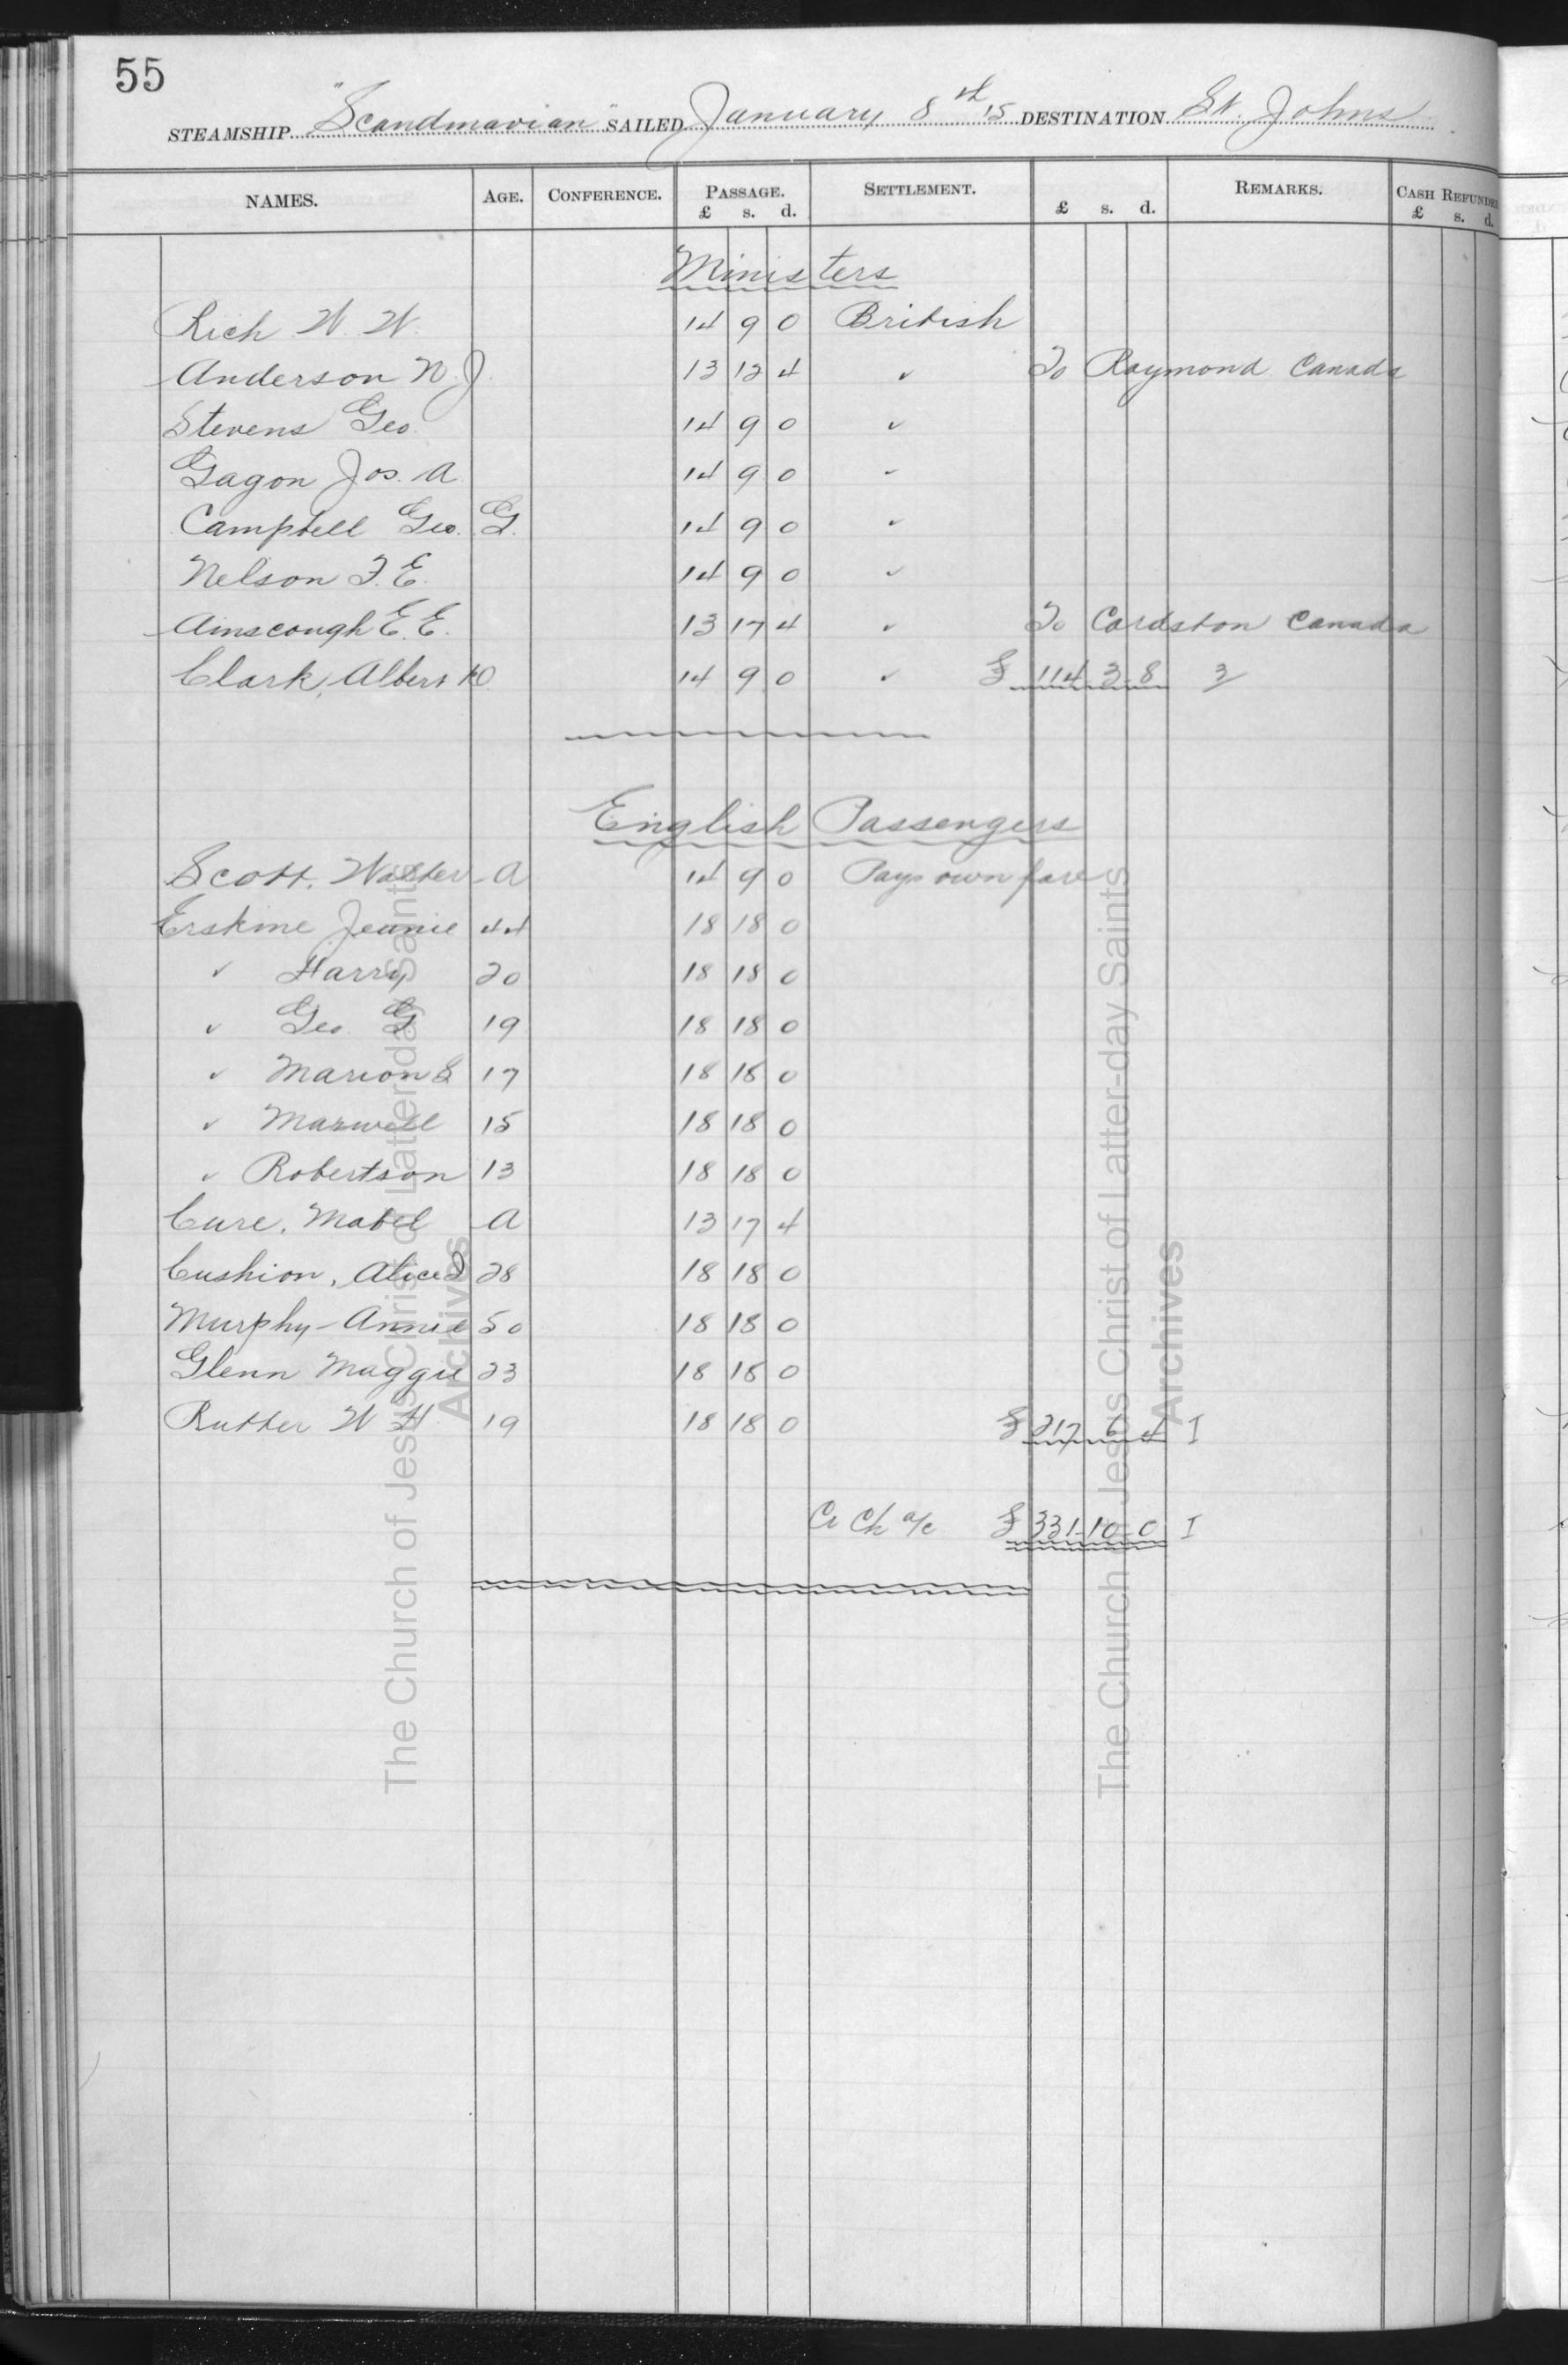 55
STEAMSHIP "Scandinavian" SAILED January 8th 15 DESTINATION St. Johns
NAMES. AGE. CONFERENCE. PASSAGE. £ s. d. SETTLEMENT. £ s. d. REMARKS. CASH REFUNDED £ s. d.
Ministers
Rich W. W. 14 9 0 British
Anderson N. J. 13 12 4 " To Raymond Canada
Stevens Geo. 14 9 0 "
Gagon Jos. A 14 9 0 "
Campbell Geo. G. 14 9 0 "
Nelson F. E. 14 9 0 "
Ainscough E. E. 13 17 4 " To Cardston Canada
Clark, Albert 14 9 0 " £ 114 3 8 3
English Passengers
Scott, Walter A 14 9 0 Pays own fare
Erskine Jeanie 44 18 18 0
" Harry 20 18 18 0
" Geo. G 19 18 18 0
" Marion S 17 18 18 0
" Maxwell 15 18 18 0
" Robertson 13 18 18 0
Cure, Mabel A 13 17 4
Cushion, Alice 28 18 18 0
Murphy - Annie 50 18 18 0
Glenn Maggie 23 18 18 0
Rutter W H 19 18 18 0 £ 217 6 4 I
Cr Ch a/c £ 331-10-0 I
The Church of Jesus Christ of Latter-day Saints
Archives
The Church of Jesus Christ of Latter-day Saints
Archives